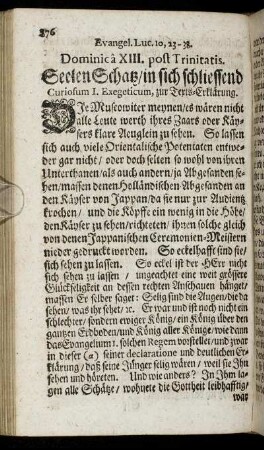 876
Evangel. Luc. 10, 23-38.
Dominicâ XIII. post Trinitatis.
Seelen Schatz/ in sich schliessend
Curiosum I. Exegeticum, zur Texts-Erklärung.
Die Muscowiter meynen/ es wären nicht
alle Leute werth ihres Zaars oder Käy-
sers klare Aeuglein zu sehen. So lassen
sich auch viele Orientalische Potentaten entwe-
der gar nicht/ oder doch selten so wohl von ihren
Unterthanen/ als auch andern/ ja Abgesanden se-
hen/ massen denen Holländischen Abgesanden an
den Käyser von Jappan/ da sie nur zur Audientz
krochen/ und die Köpffe ein wenig in die Höhe/
den Käyser zu sehen/ richteten/ ihnen solche gleich
von denen Jappanischen Ceremonien-Meistern
nieder gedruckt worden. So eckelhafft sind sie/
sich sehen zu lassen. So eckel ist der HErr nicht
sich sehen zu lassen/ ungeachtet eine weit grössere
Glückseligkeit an dessen rechten Anschauen hänget/
massen Er selber saget: Selig sind die Augen/ die da
sehen/ was ihr sehet/ &c. Er war und ist noch nicht ein
schlechter/ sondern ewiger König/ ein König über den
gantzen Erdboden/ und König aller Könige/ wie dann
das Evangelium 1. solchen Regem vorstellet/ und zwar
in dieser (a) seiner declaratione und deutlichen Er-
klärung/ daß seine Jünger selig wären/ weil sie Ihn
sehen und höreten. Und wie anders? In Ihm la-
gen alle Schätze/ wohnete die Gottheit leibhafftig/
war